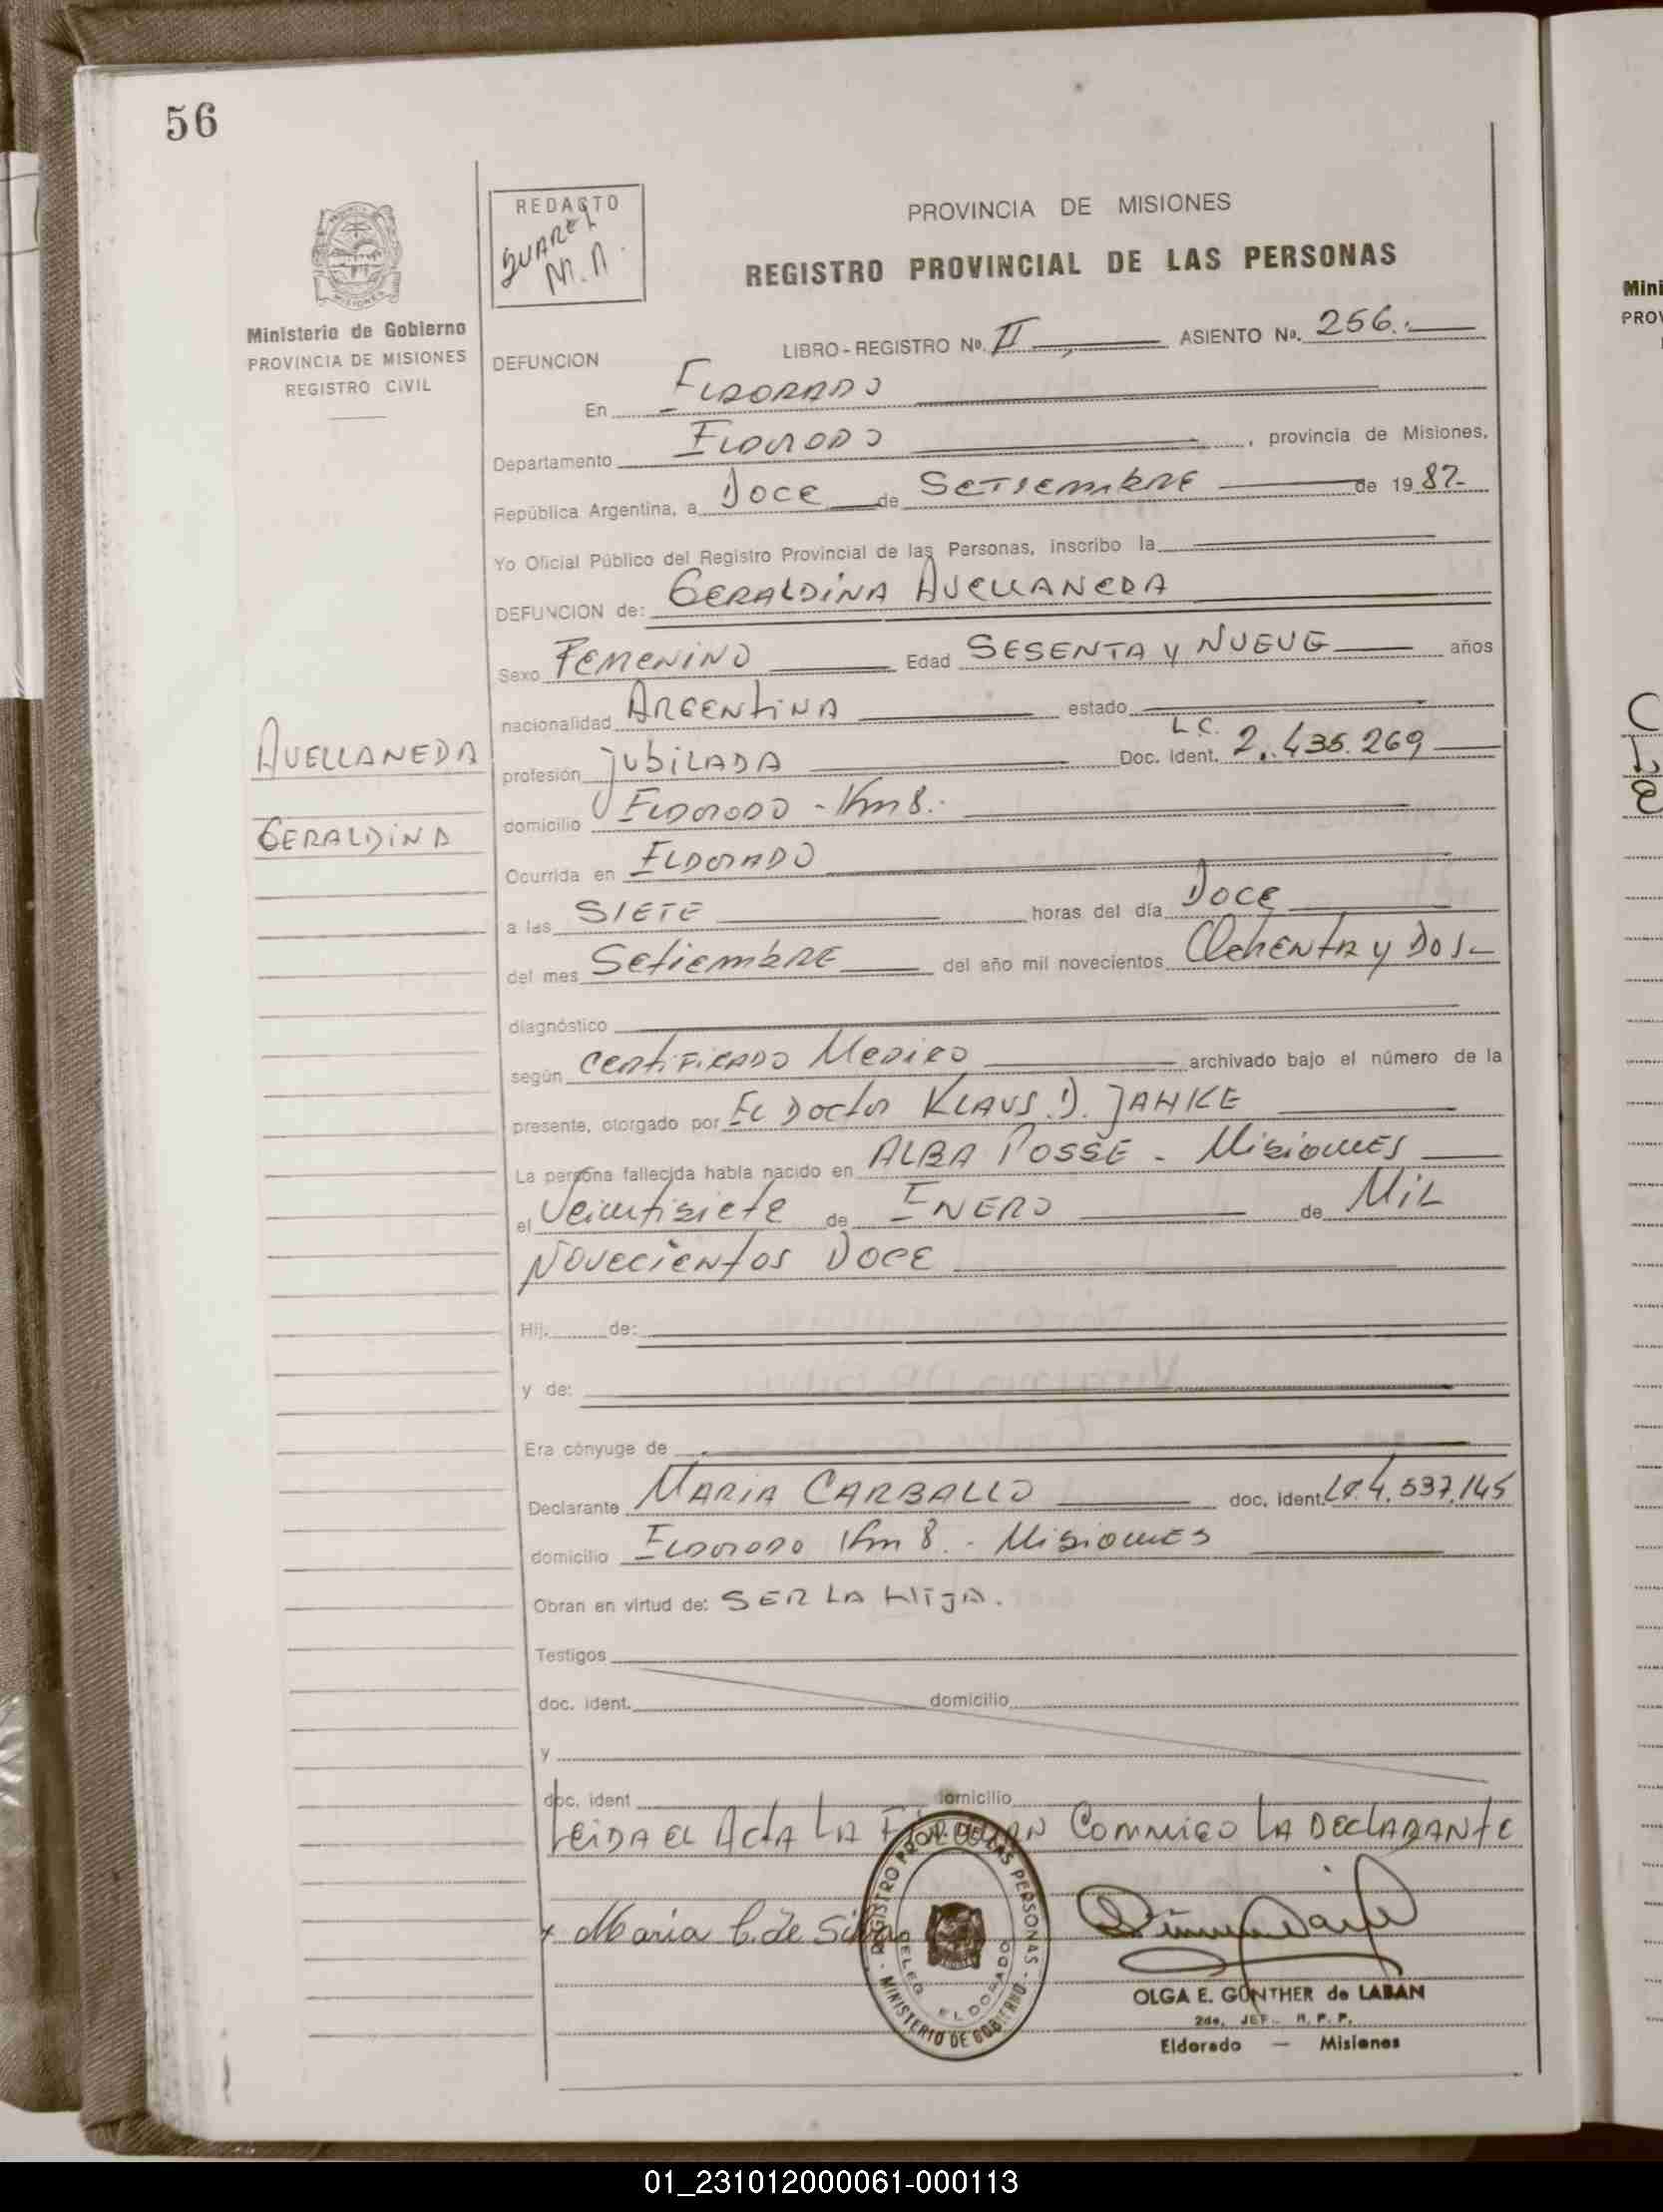 56
Ministerio de Gobierno
PROVINCIA DE MISIONES
REGISTRO CIVIL
AVELLANEDA
GERALDINA
REDACTO
SUAREZ
M. A.
PROVINCIA DE MISIONES
REGISTRO PROVINCIAL DE LAS PERSONAS
DEFUNCION LIBRO - REGISTRO No. II ASIENTO No. 256.
En ELDORADO
Departamento ELDORADO , provincia de Misiones,
República Argentina, a DOCE de SETIEMBRE de 1982-
Yo Oficial Público del Registro Provincial de las Personas, inscribo la
DEFUNCION de: GERALDINA AVELLANEDA
Sexo FEMENINO Edad SESENTA y NUEVE años
nacionalidad ARGENTINA estado
profesión JUBILADA Doc. Ident. L.C. 2.435.269
domicilio ELDORADO - Km 8.
Ocurrida en ELDORADO
a las SIETE horas del día DOCE
del mes SETIEMBRE del año mil novecientos OCHENTA y DOS-
diagnóstico
según CERTIFICADO MEDICO archivado bajo el número de la
presente, otorgado por EL DOCTOR KLAUS. D. JAHKE
La persona fallecida había nacido en ALBA POSSE - MISIONES
el Veintisiete de ENERO de MIL
NOVECIENTOS DOCE
Hij. de:
y de:
Era cónyuge de
Declarante MARIA CARBALLO doc. ident. L.C. 4.537.145
domicilio ELDORADO Km 8. - MISIONES
Obran en virtud de: SER LA HIJA.
Testigos
doc. ident. domicilio
y
doc. ident domicilio
LEIDA EL ACTA LA FIRMAN CONMIGO LA DECLARANTE
x Maria C. de Silva
REGISTRO PROV. DE LAS PERSONAS - MINISTERIO DE GOBIERNO -
DELEG. ELDORADO
OLGA E. GUNTHER de LABAN
2da. JEF. R. P. P.
Eldorado — Misiones
Mini
PROV
01_231012000061-000113